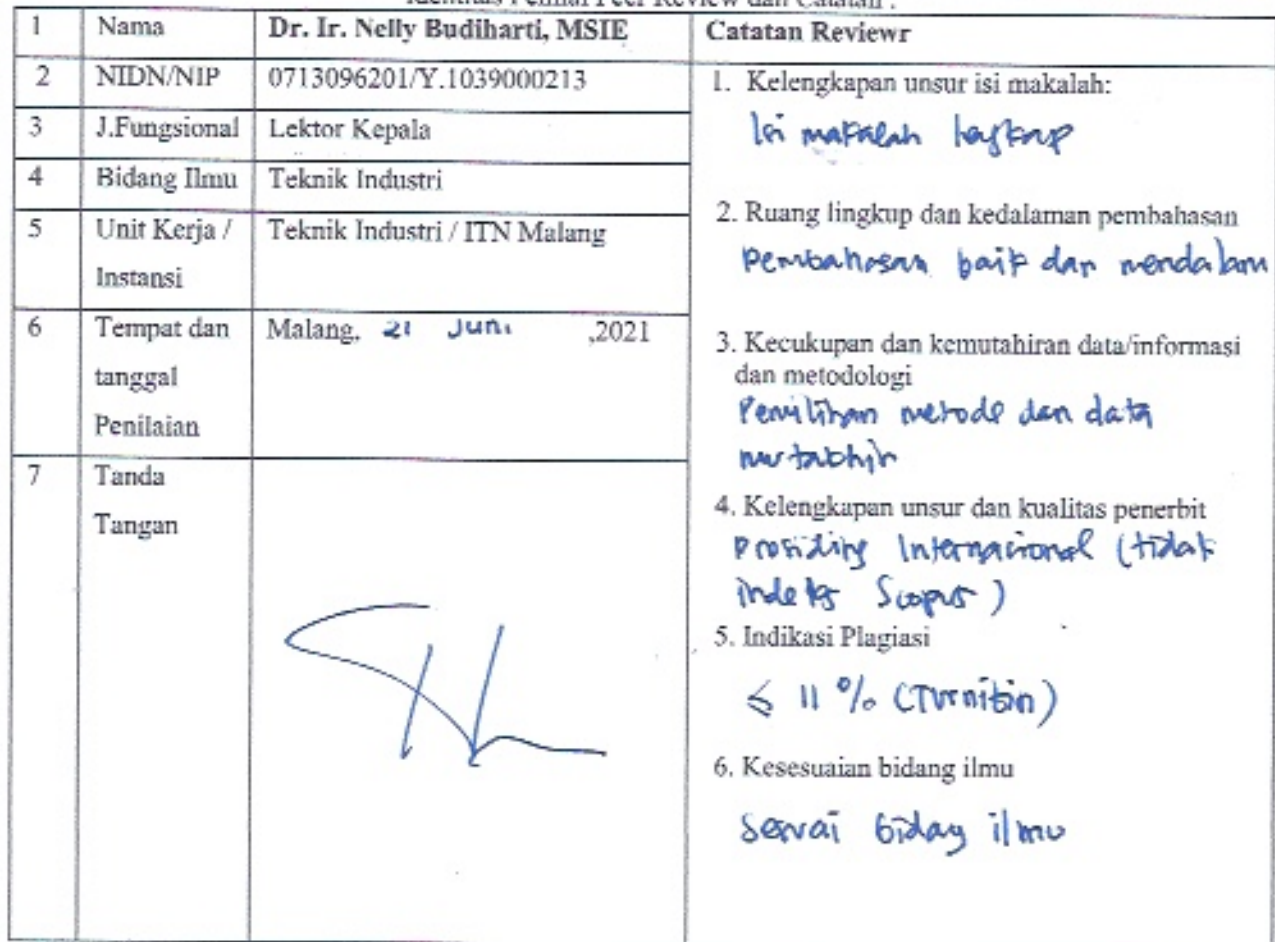 Identitas Penilai Peer Review dan Catatan :
1 Nama Dr. Ir. Nelly Budiharti, MSIE
2 NIDN/NIP 0713096201/Y.1039000213
3 J.Fungsional Lektor Kepala
4 Bidang Ilmu Teknik Industri
5 Unit Kerja / Teknik Industri / ITN Malang
Instansi
6 Tempat dan Malang, 21 Juni ,2021
tanggal
Penilaian
7 Tanda
Tangan
Catatan Reviewr
1. Kelengkapan unsur isi makalah:
Isi makalah lengkap
2. Ruang lingkup dan kedalaman pembahasan
Pembahasan baik dan mendalam
3. Kecukupan dan kemutahiran data/informasi
dan metodologi
Pemilihan metode dan data
mutakhir
4. Kelengkapan unsur dan kualitas penerbit
Prosiding Internasional (tidak
indeks Scopus)
5. Indikasi Plagiasi
≤ 11 % (Turnitin)
6. Kesesuaian bidang ilmu
Sesuai bidang ilmu